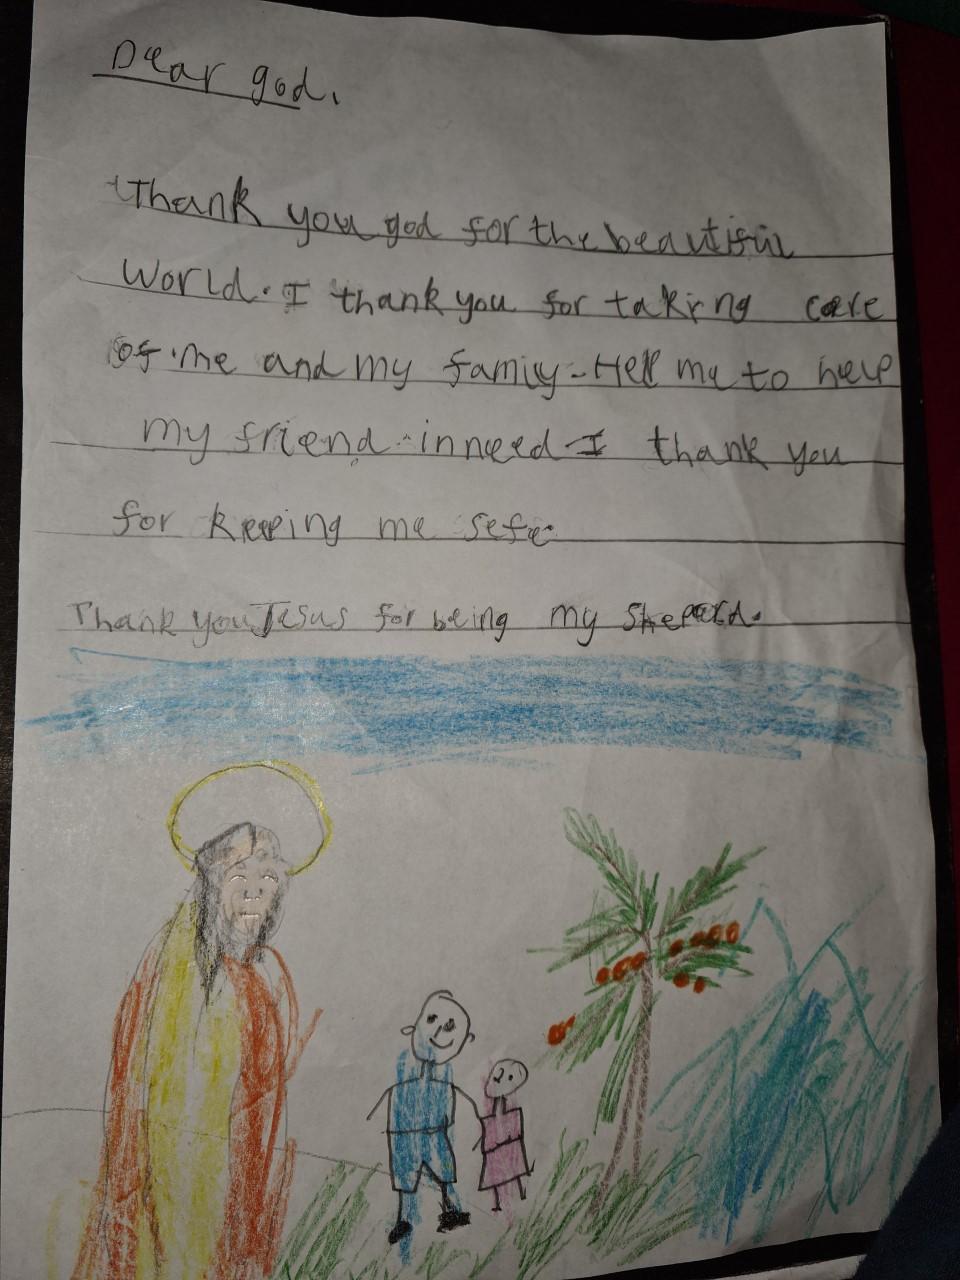 Dear god.
Thank you god for the beautiful
World. I thank you for taking care
of me and my famiy. Help me to help
my friend in need I thank you
for keeping me sefe
Thank you Jesus for being my Sheperd.